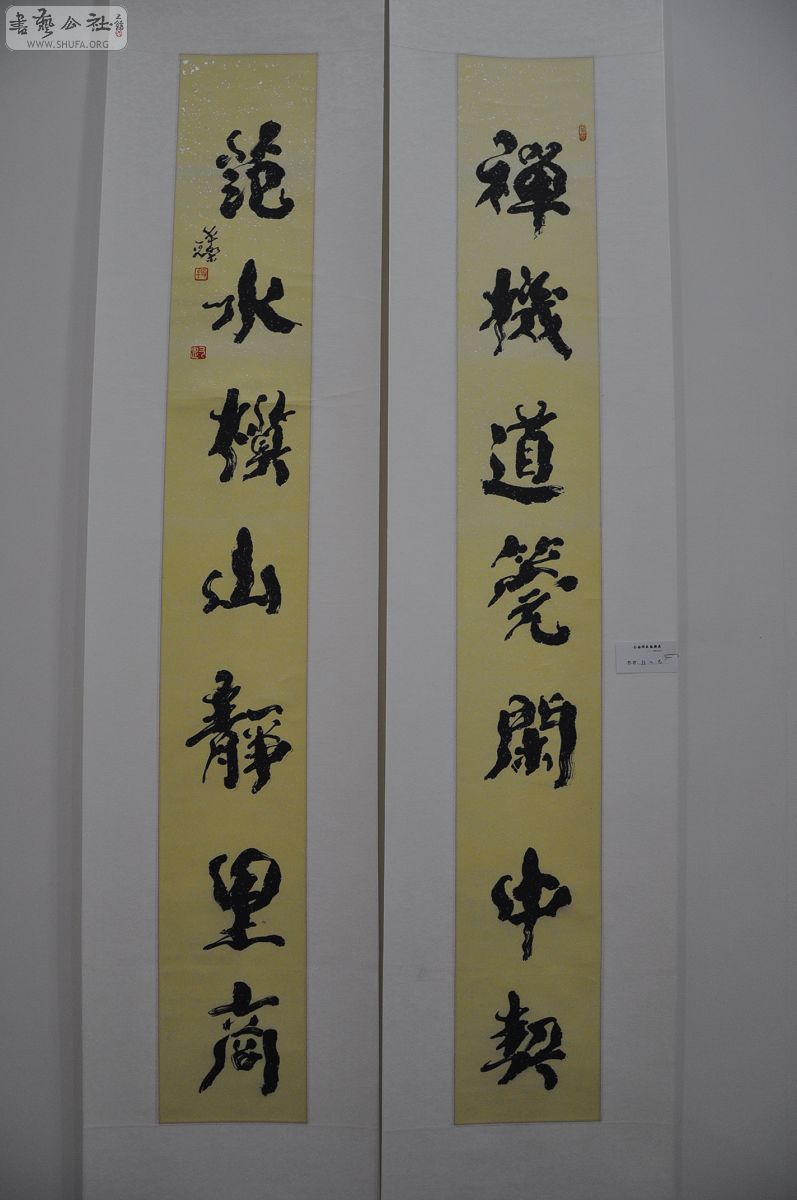 禪機道筦閑中契
範水模山靜里商
書藝公社
WWW.SHUFA.ORG